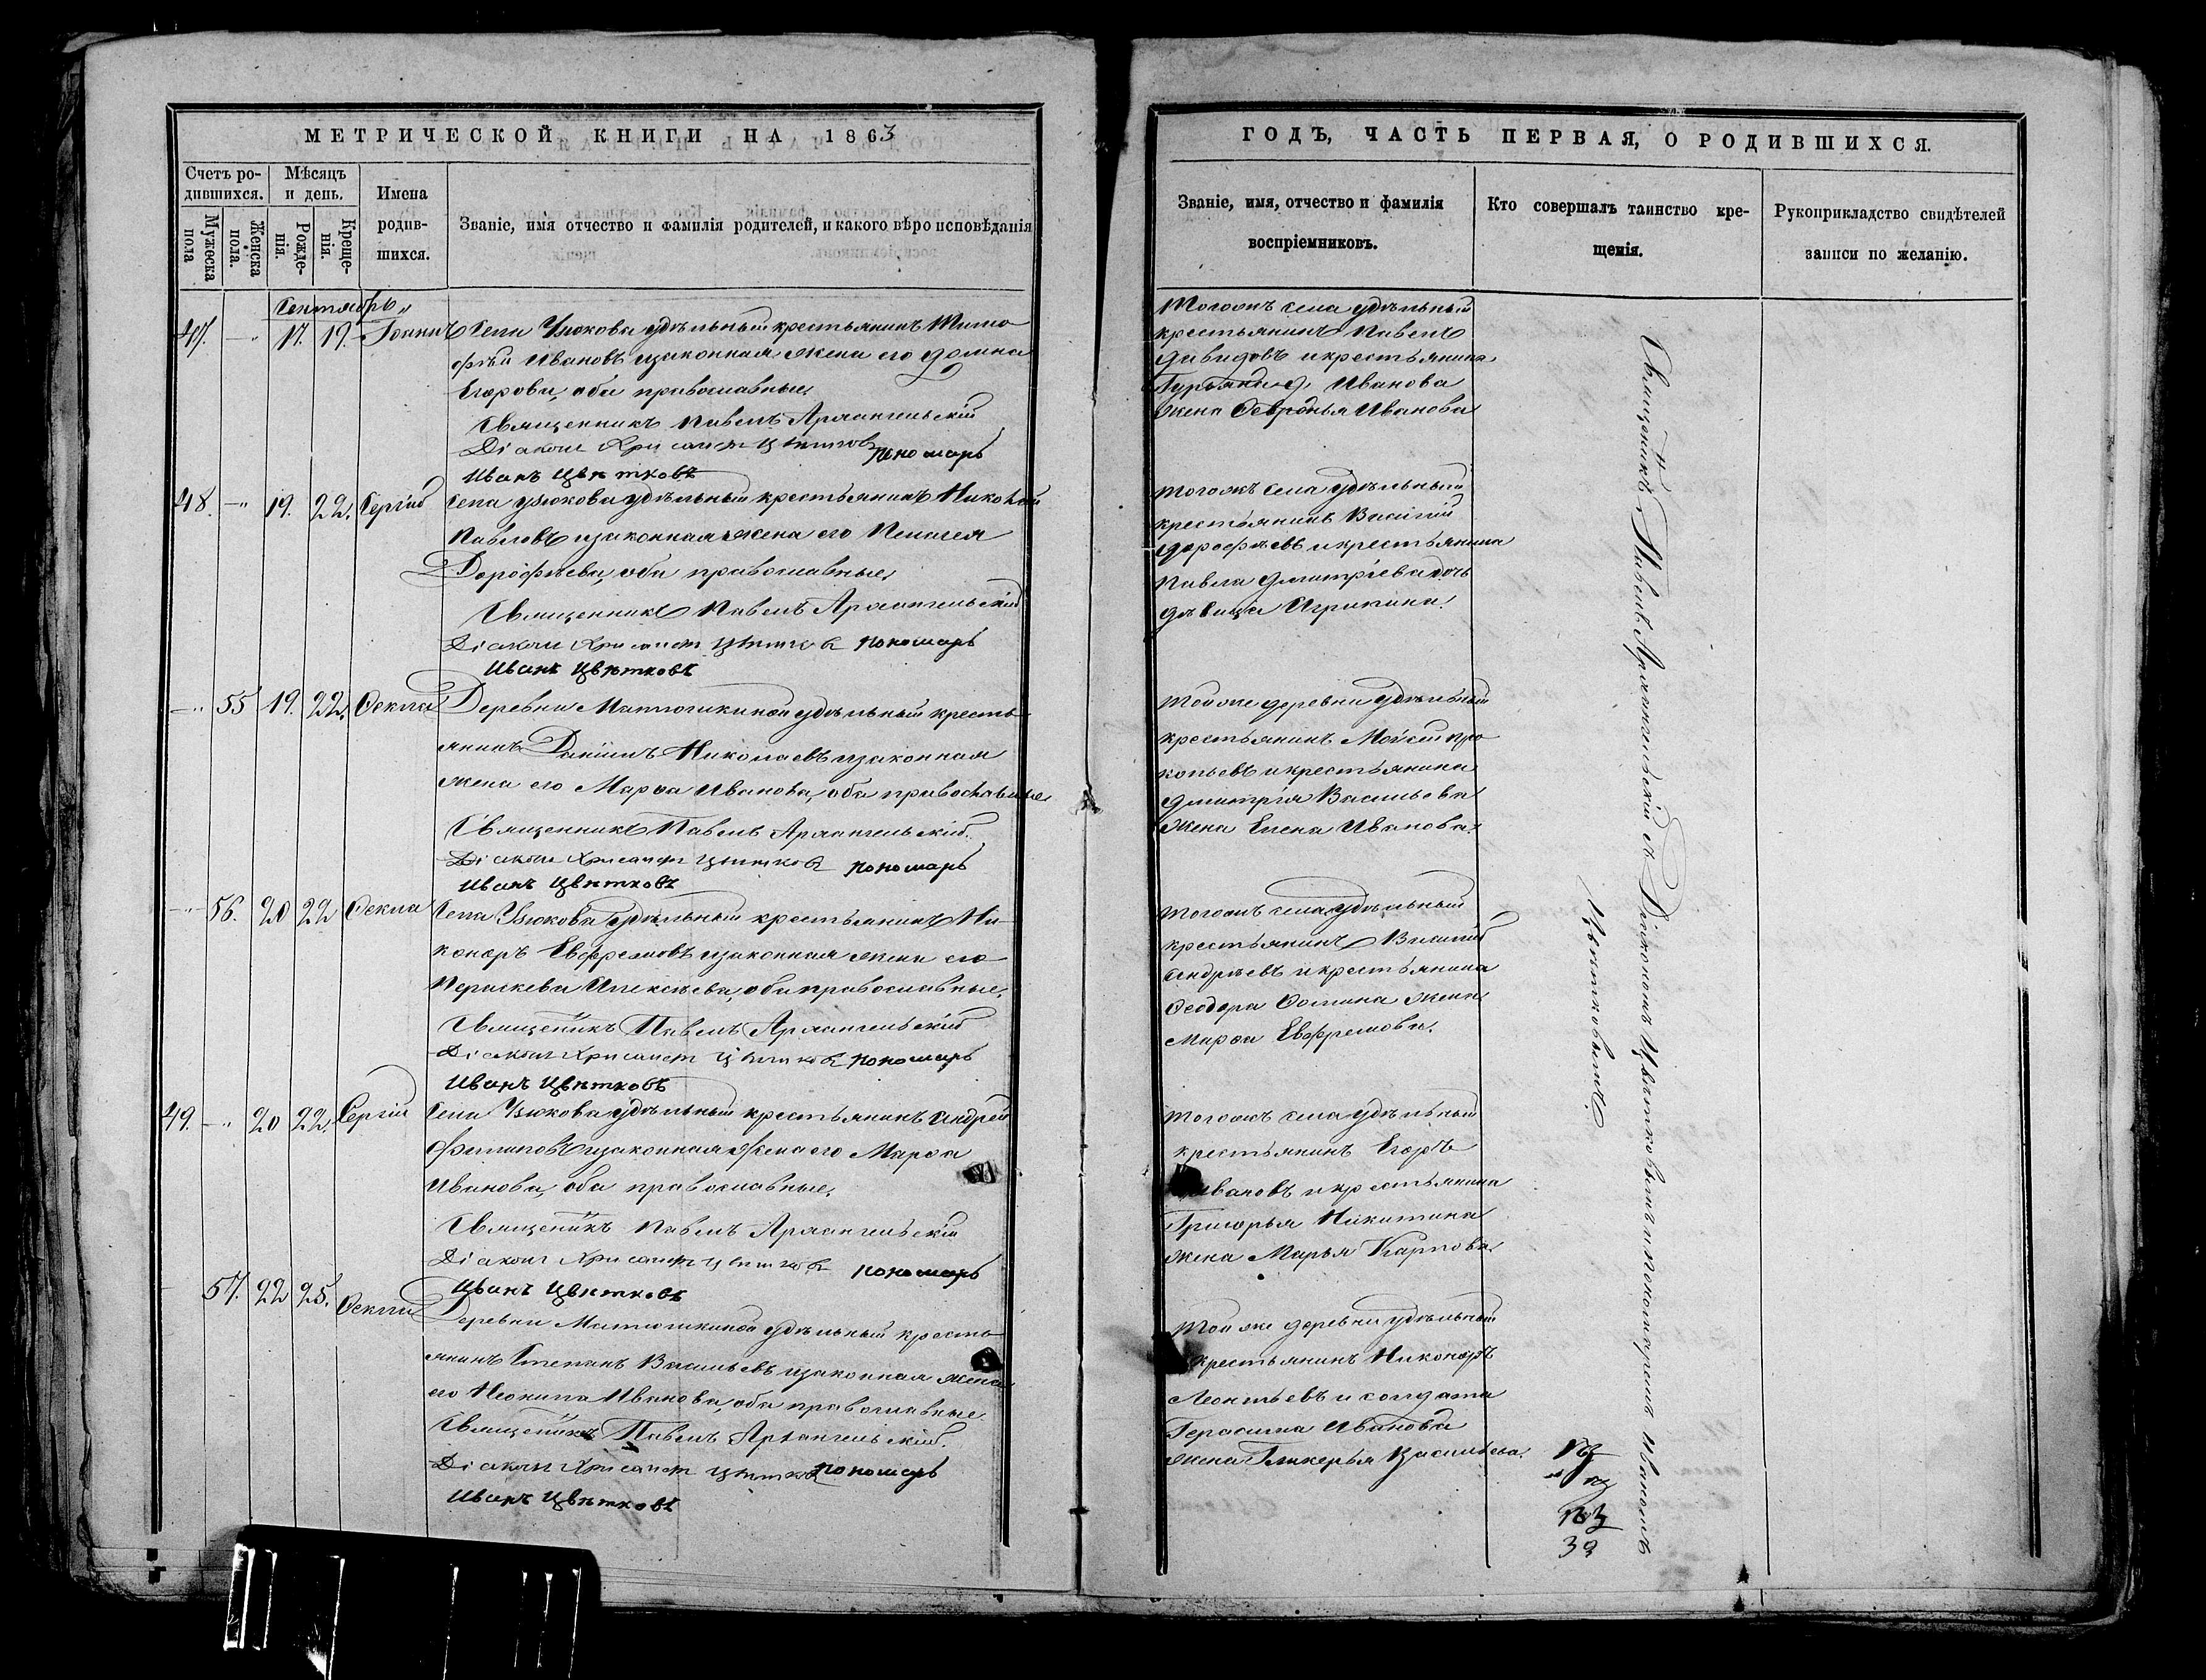 МЕТРИЧЕСКОЙ КНИГИ НА 1863
Счетъ родившихся.
Мѣсяцъ и день.
Имена родившихся.
Званіе, имя отчество и фамилія родителей, и какого вѣроисповѣданія
Мужеска пола
Женска пола.
Рожденія.
Крещенія.
Сентябрь
47. 17. 19. Іоаннъ Села Узюкова удѣльный крестьянинъ Тимо-
фѣй Ивановъ и законная жена его Домна
Егорова, оба православные.
Священникъ Павелъ Архангельскій
Діаконъ Хрисанфъ Цвѣтковъ пономарь
Иванъ Цвѣтковъ
48. 19. 22. Сергій Села Узюкова удѣльный крестьянинъ Николай
Павловъ и законная жена его Пелагея
Дорофѣева, оба православные.
Священникъ Павелъ Архангельскій
Діаконъ Хрисанфъ Цвѣтковъ пономарь
Иванъ Цвѣтковъ
55 19. 22. Ѳекла Деревни Матюшкиной удѣльный кресть-
янинъ Даніилъ Николаевъ и законная
жена его Марѳа Иванова, оба православные
Священникъ Павелъ Архангельскій.
Діаконъ Хрисанфъ Цвѣтковъ пономарь
Иванъ Цвѣтковъ
56. 20 22 Ѳекла Села Узюкова удѣльный крестьянинъ Ни-
каноръ Евфремовъ и законная жена его
Параскева Алексѣева, оба православные.
Священикъ Павелъ Архангельскій
Діаконъ Хрисанфъ Цвѣтковъ пономарь
Иванъ Цвѣтковъ
49. 20 22. Сергій Села Узюкова удѣльный крестьянинъ Андрей
Филиповъ и законная жена его Марѳа
Иванова, оба православные.
Священикъ Павелъ Архангельскій
Діаконъ Хрисанфъ Цвѣтковъ пономарь
Иванъ Цвѣтковъ
57. 22 25. Ѳекла Деревни Матюшкиной удѣльный кресть-
янинъ Степанъ Васильевъ и законная жена
его Неонила Иванова, оба православные.
Священикъ Павелъ Архангельскій.
Діаконъ Хрисанфъ Цвѣтковъ пономарь
Иванъ Цвѣтковъ
ГОДЪ, ЧАСТЬ ПЕРВАЯ, О РОДИВШИХСЯ.
Званіе, имя, отчество и фамилія воспріемниковъ.
Кто совершалъ таинство крещенія.
Рукоприкладство свидѣтелей записи по желанію.
Тогожъ села удѣльный
крестьянинъ Павелъ
Давидовъ и крестьянина
Иванова
жена Иванова
тогожъ села удѣльный
крестьянинъ Василій
Дорофѣевъ и крестьянина
Павла Дмитріева дочь
дѣвица Агрипина.
Той же деревни удѣльный
крестьянинъ Мойсей Про-
копьевъ и крестьянина
Дмитрія Васильева
жена Елена Иванова.
тогожъ села удѣльный
крестьянинъ Василій
Андрѣевъ и крестьянина
Ѳеодора Ѳомина жена
Марѳа Евфремова.
тогожъ села удѣльный
крестьянинъ Егоръ
Ивановъ и крестьянина
Григорья Никитина
жена Марья Карпова.
Той же деревни удѣльный
крестьянинъ Никаноръ
Леонтьевъ и солдата
Герасима Иванова
жена Гликерья Васильева.
Священикъ Павелъ Архангельскій съ Діакономъ Цвѣтковымъ и пономаремъ Иваномъ
Цвѣтковымъ.